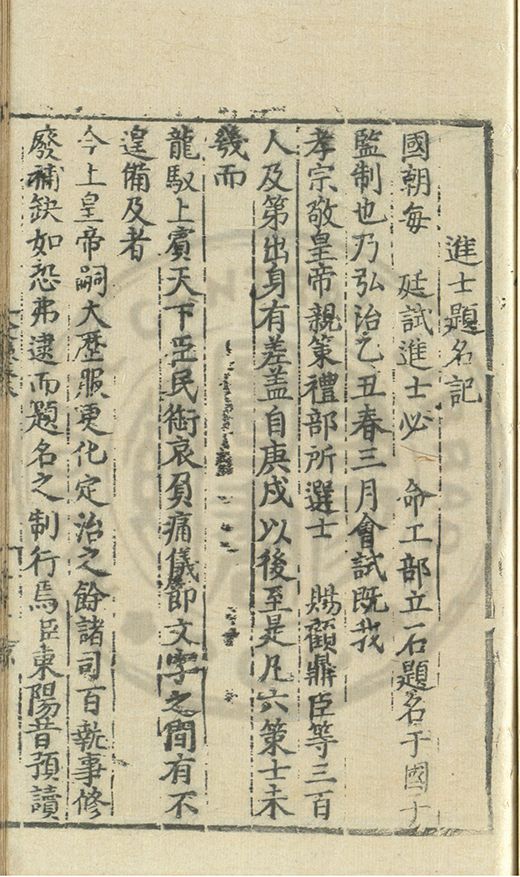 進士題名記
國朝每　廷試進士必　命工部立石題名于國子
監制也乃弘治乙丑春三月會試既我
孝宗敬皇帝親策禮部所選士　賜顧鼎臣等三百
人及第出身有差盖自庚戌以後至是凡六策士未
幾而
龍馭上賓天下臣民銜哀負痛儀節文字之間有不
遑備及者
今上皇帝嗣大歷服更化定治之餘諸司百執事修
廢補缺如恐弗逮而題名之制行焉臣東陽昔預讀